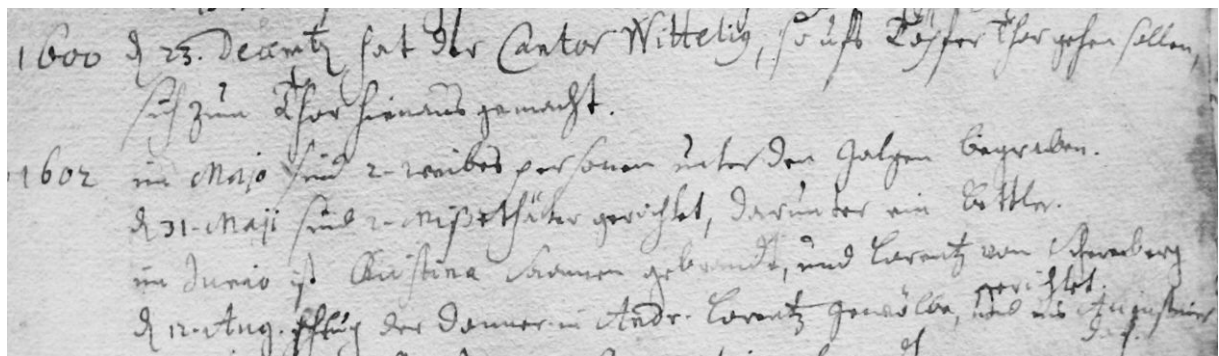 1600 d 23. Decembr hat der Cantor Wittelig, so ufs Töpfer Thor gehen sollen,
sich zum Thor hienaus gemacht.
1602 im Majo sind 2. weibes personen unter den galgen begraben.
d 31. Maji sind 2. Mißethäter gerichtet, darunter ein Bettler.
im Junio ist Christina gebrandt, und Lorentz von
gerichtet.
d 12. Aug. schlug der donner in Andr. Lorentz gewölbe, und ins Augustiner